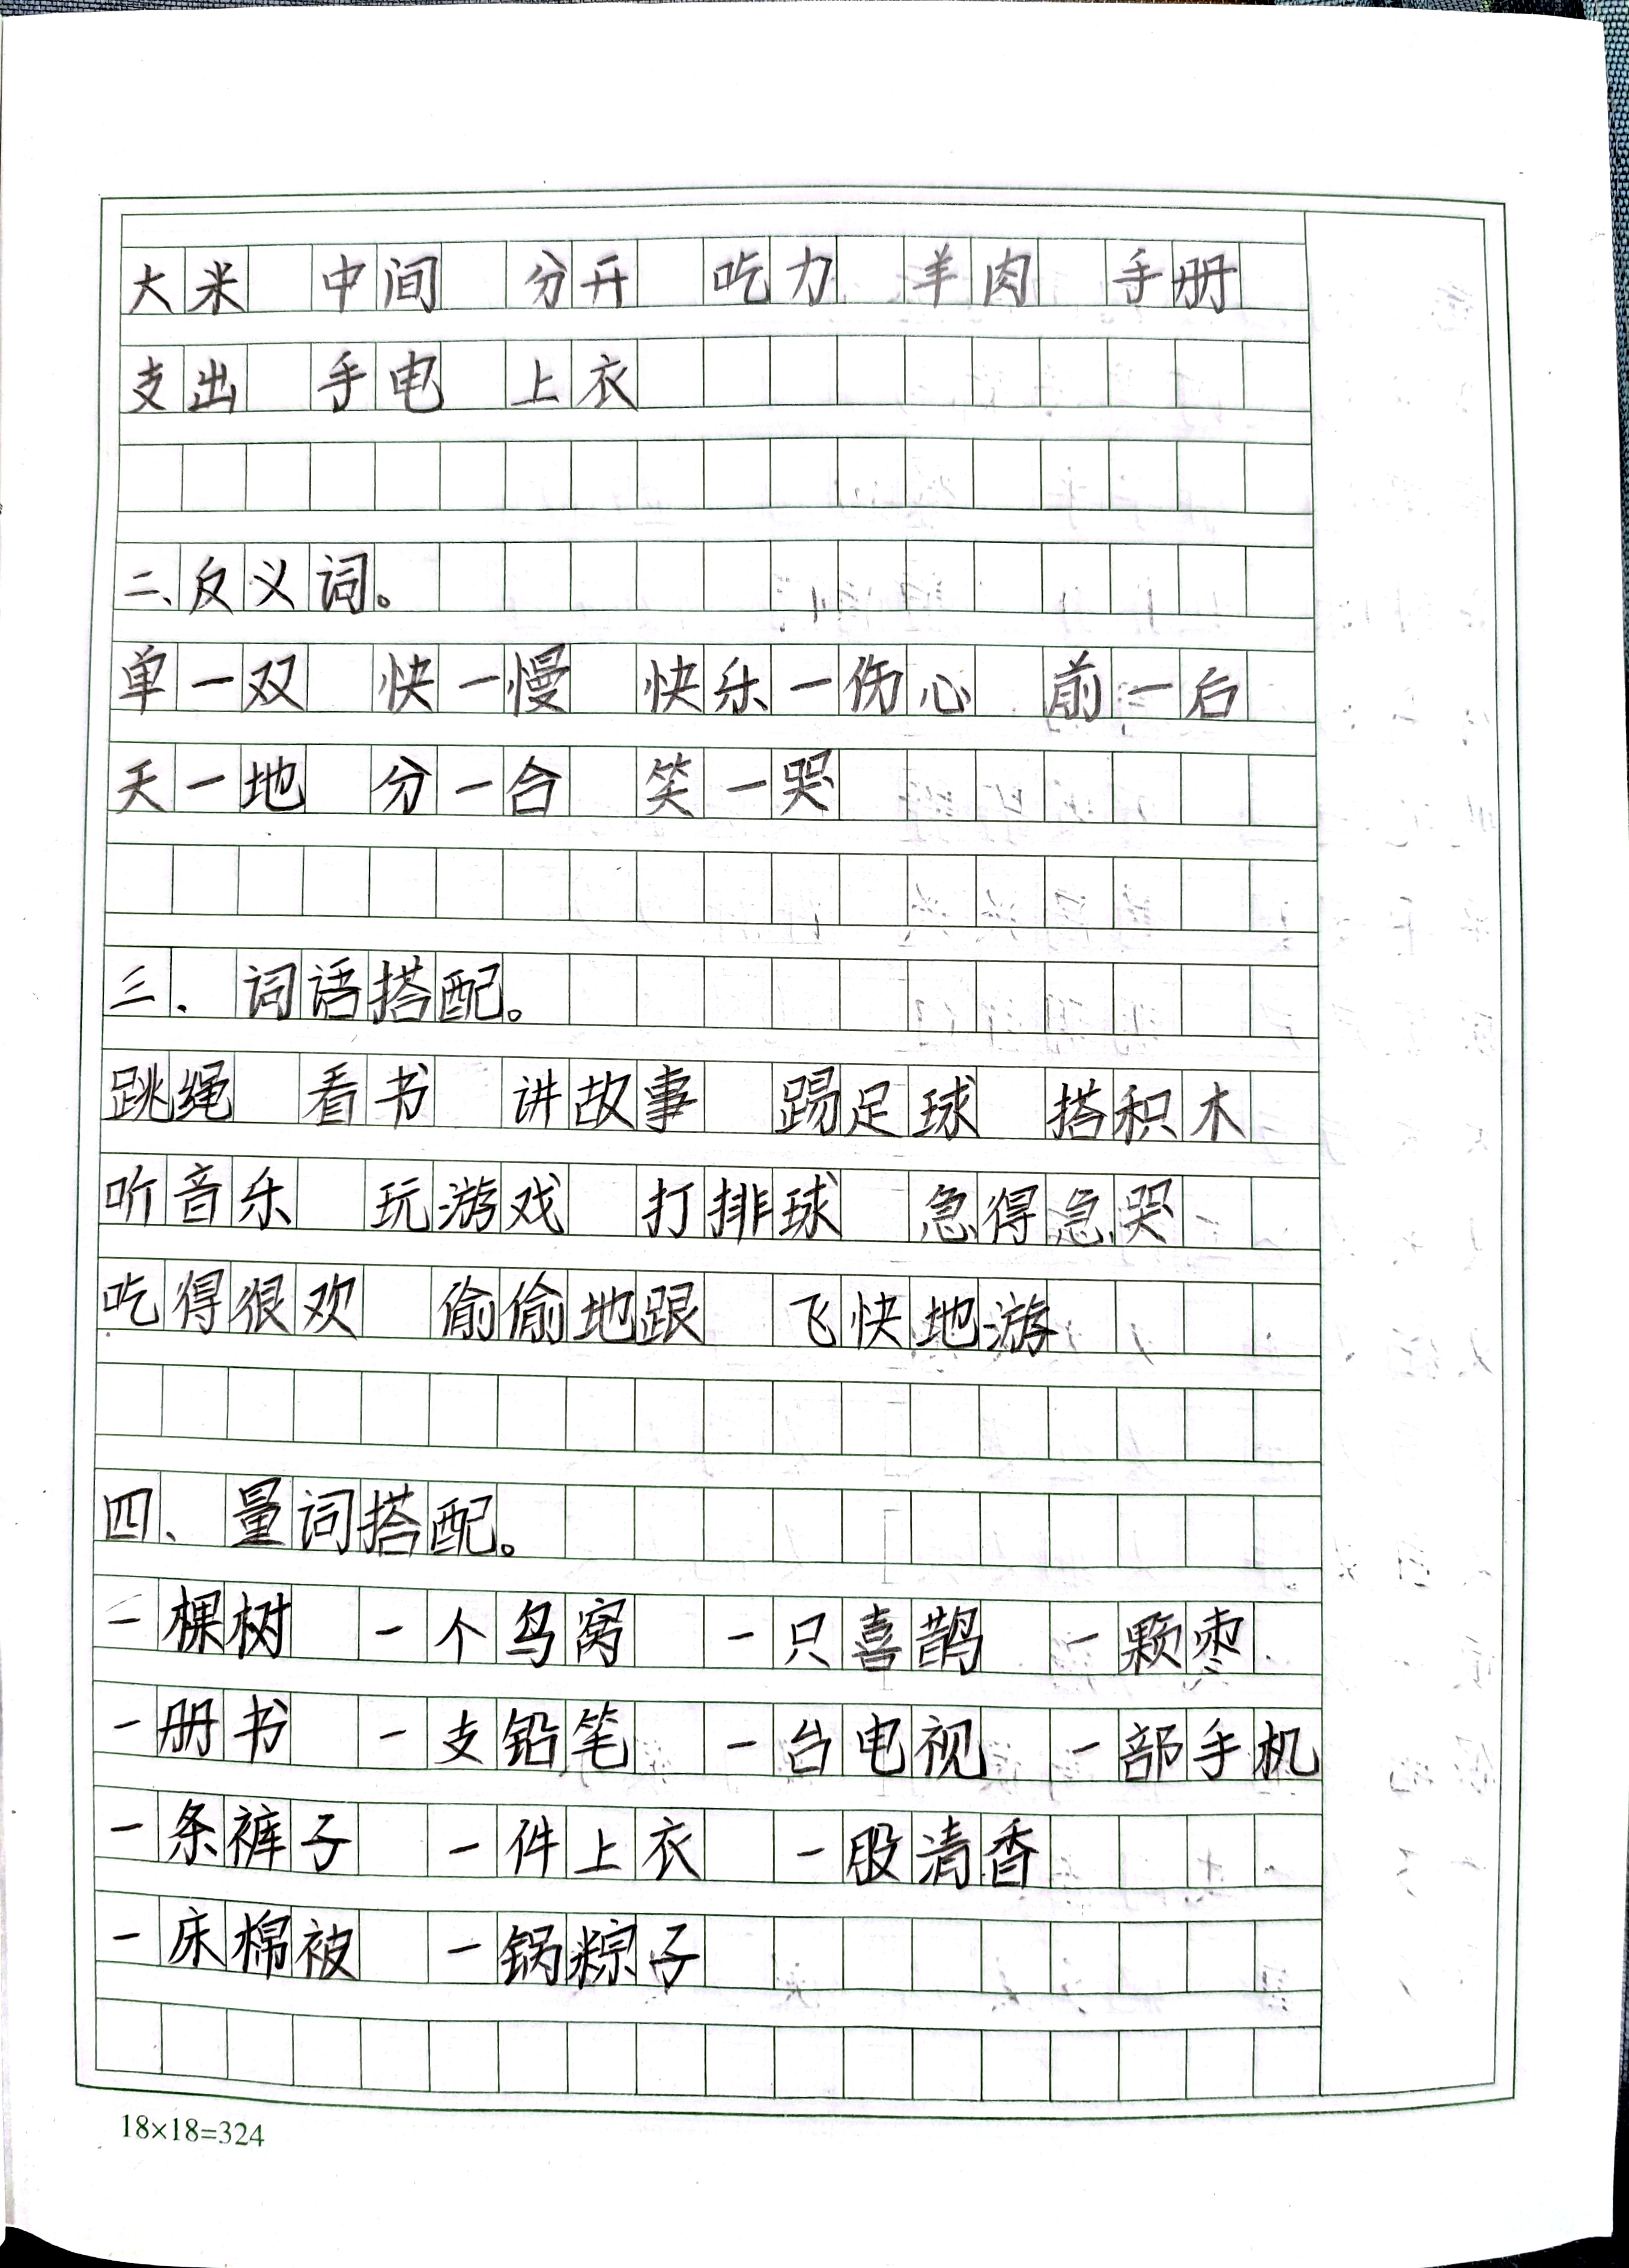 大米 中间 分开 吃力 羊肉 手册
支出 手电 上衣
二、反义词。
单一双 快一慢 快乐一伤心 前一后
天一地 分一合 笑一哭
三、词语搭配。
跳绳 看书 讲故事 踢足球 搭积木
听音乐 玩游戏 打排球 急得急哭
吃得很欢 偷偷地跟 飞快地游
四、量词搭配。
一棵树 一个鸟窝 一只喜鹊 一颗枣
一册书 一支铅笔 一台电视 一部手机
一条裤子 一件上衣 一股清香
一床棉被 一锅粽子
18×18=324